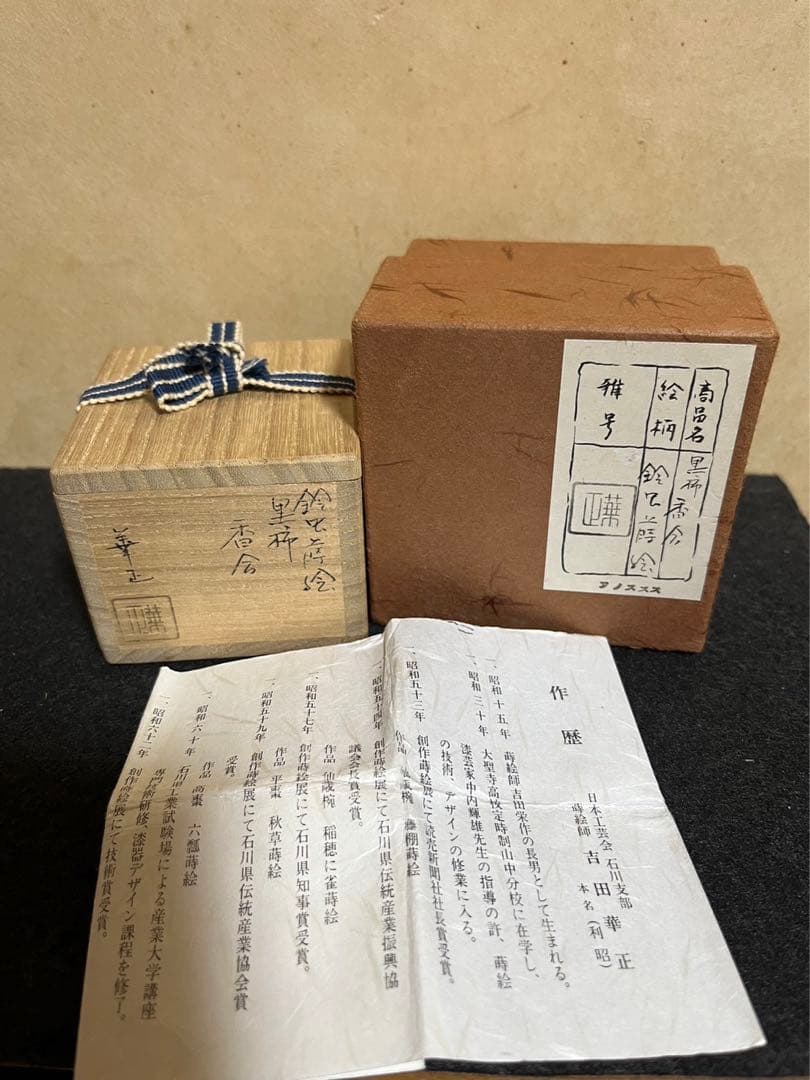 鈴虫蒔絵
黒柿
香合
華正
華正
商品名
黒柿香合
絵柄
鈴虫蒔絵
雅号
華正
作歴
日本工芸会 石川支部
蒔絵師 吉田華正
本名(利昭)
一、昭和十五年 蒔絵師吉田栄作の長男として生まれる。
一、昭和三十年 大聖寺高校定時制山中分校に在学し、
漆芸家中内輝雄先生の指導の許、蒔絵
の技術、デザインの修業に入る。
一、昭和五十三年 創作蒔絵展にて読売新聞社社長賞受賞。
作品 仙歳椀 藤棚蒔絵
一、昭和五十四年 創作蒔絵展にて石川県伝統産業振興協
議会会長賞受賞。
作品 仙歳椀 稲穂に雀蒔絵
一、昭和五十七年 創作蒔絵展にて石川県知事賞受賞。
作品 平棗 秋草蒔絵
一、昭和五十九年 創作蒔絵展にて石川県伝統産業協会賞
受賞。
作品 高棗 六瓢蒔絵
一、昭和六十年 石川県工業試験場による産業大学講座
専門技術研修、漆器デザイン課程を修了。
一、昭和六十二年 創作蒔絵展にて技術賞受賞。